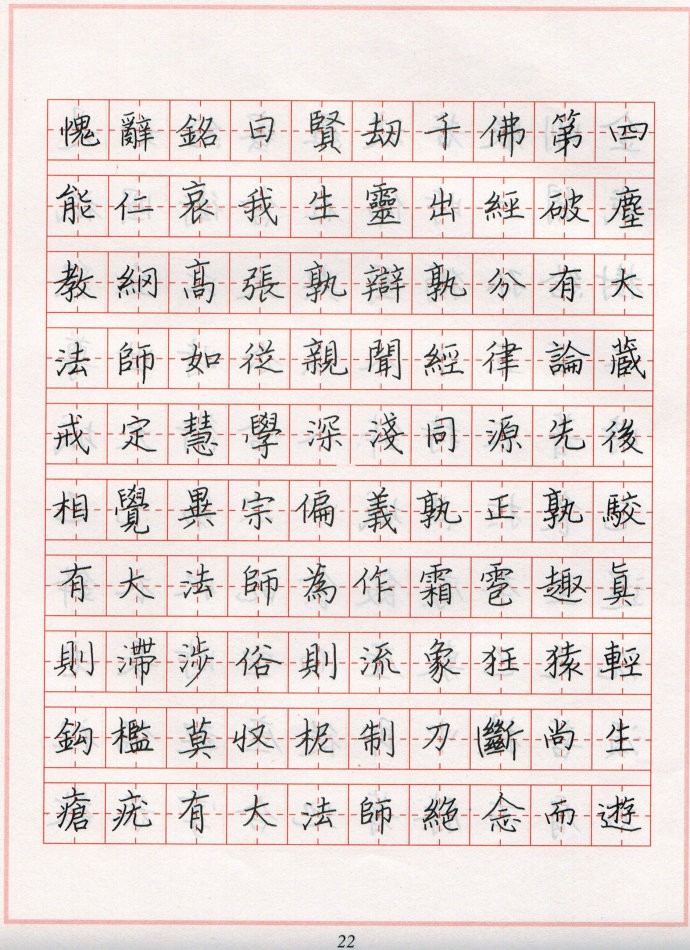 愧辭銘曰賢劫千佛第四
能仁哀我生靈出經破塵
教綱高張孰辯孰分有大
法師如從親聞經律論藏
戒定慧學深淺同源先後
相覺異宗偏義孰正孰駮
有大法師為作霜雹趣真
則滯涉俗則流象狂猿輕
鈎檻莫收柅制刀斷尚生
瘡疣有大法師絕念而遊
22